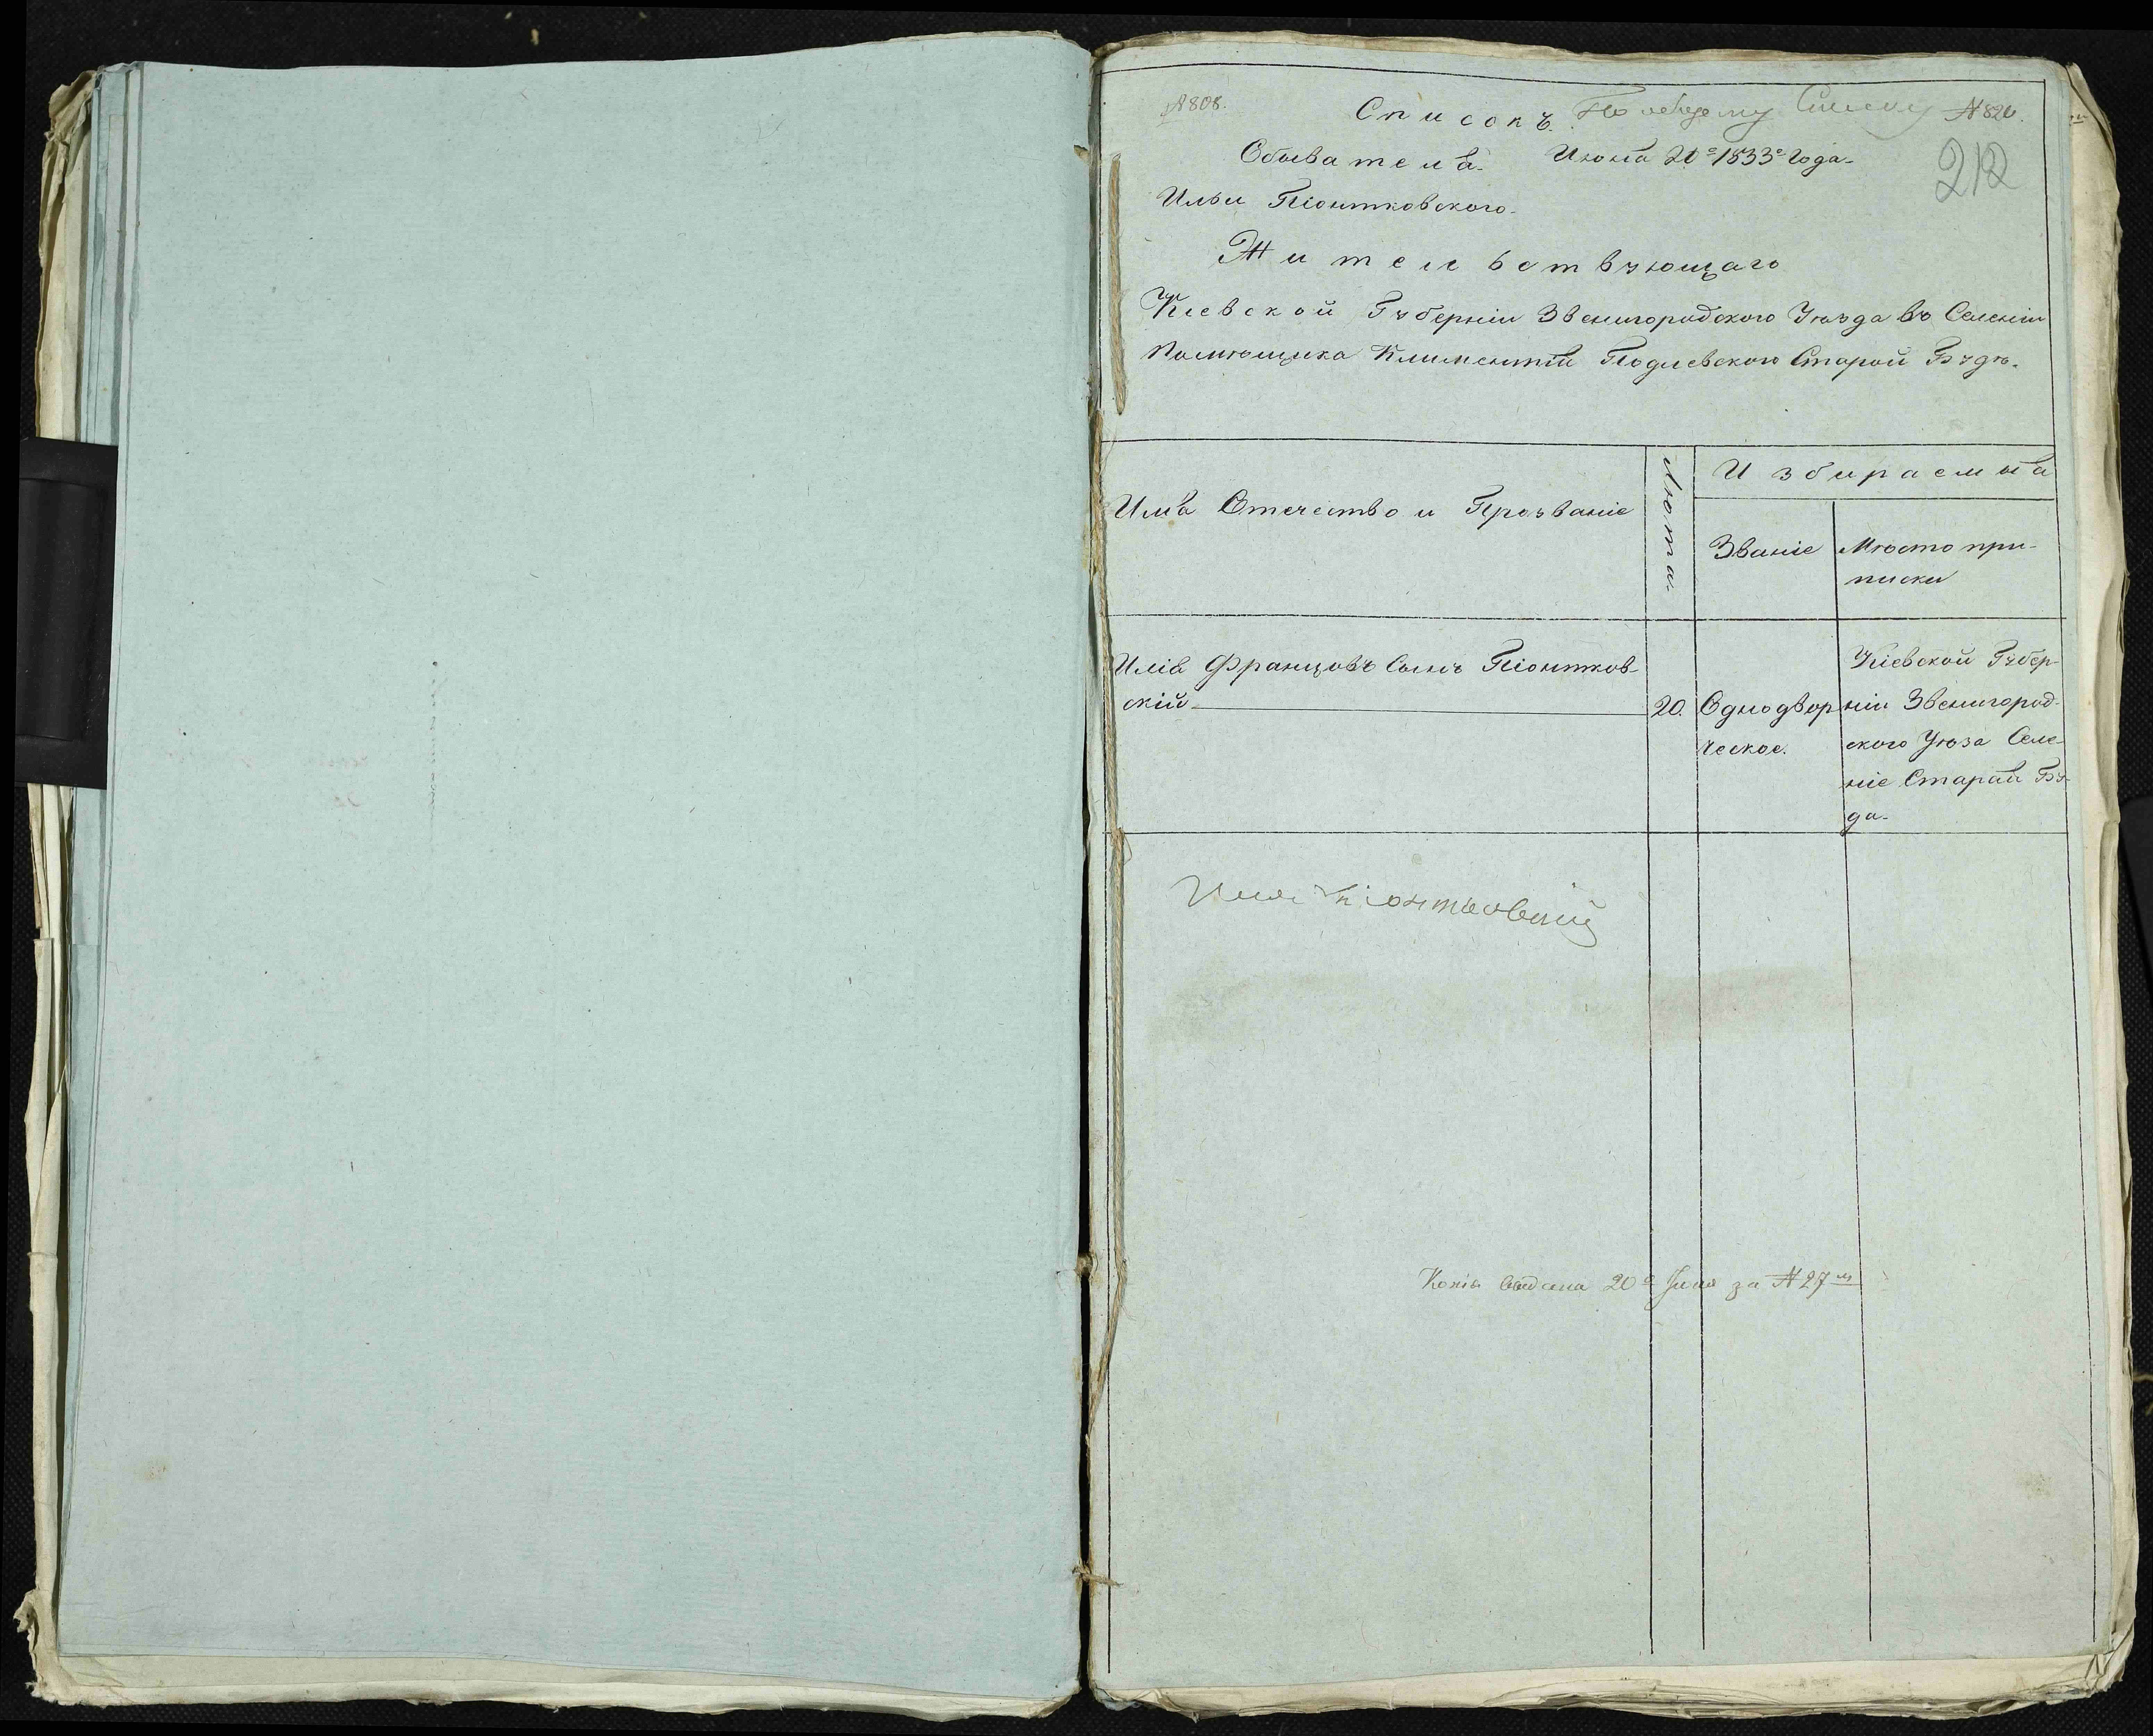 № 808.
Списокъ. По общему Списку № 820.
Обывателя. Июня 20го 1833го Года.
212
Ильи Піонтковского.
Жительствующаго
Кіевской Губерніи Звенигородского Уѣзда въ Селеніи
Помѣщика Климентія Подлевского Старой Будѣ.
Имя Отечество и Прозваніе
Лѣта.
Избираемыя
Званіе
Мѣсто при-
писки
Илія Францовъ Сынъ Піонтков-
скій
20.
Однодвор
ческое.
Кіевской Губер-
ніи Звенигород-
ского Уѣзда Селе-
ніе Старай Бу-
да.
Илія Піонтковскій
Копія выдана 20го Іюня за № 27м